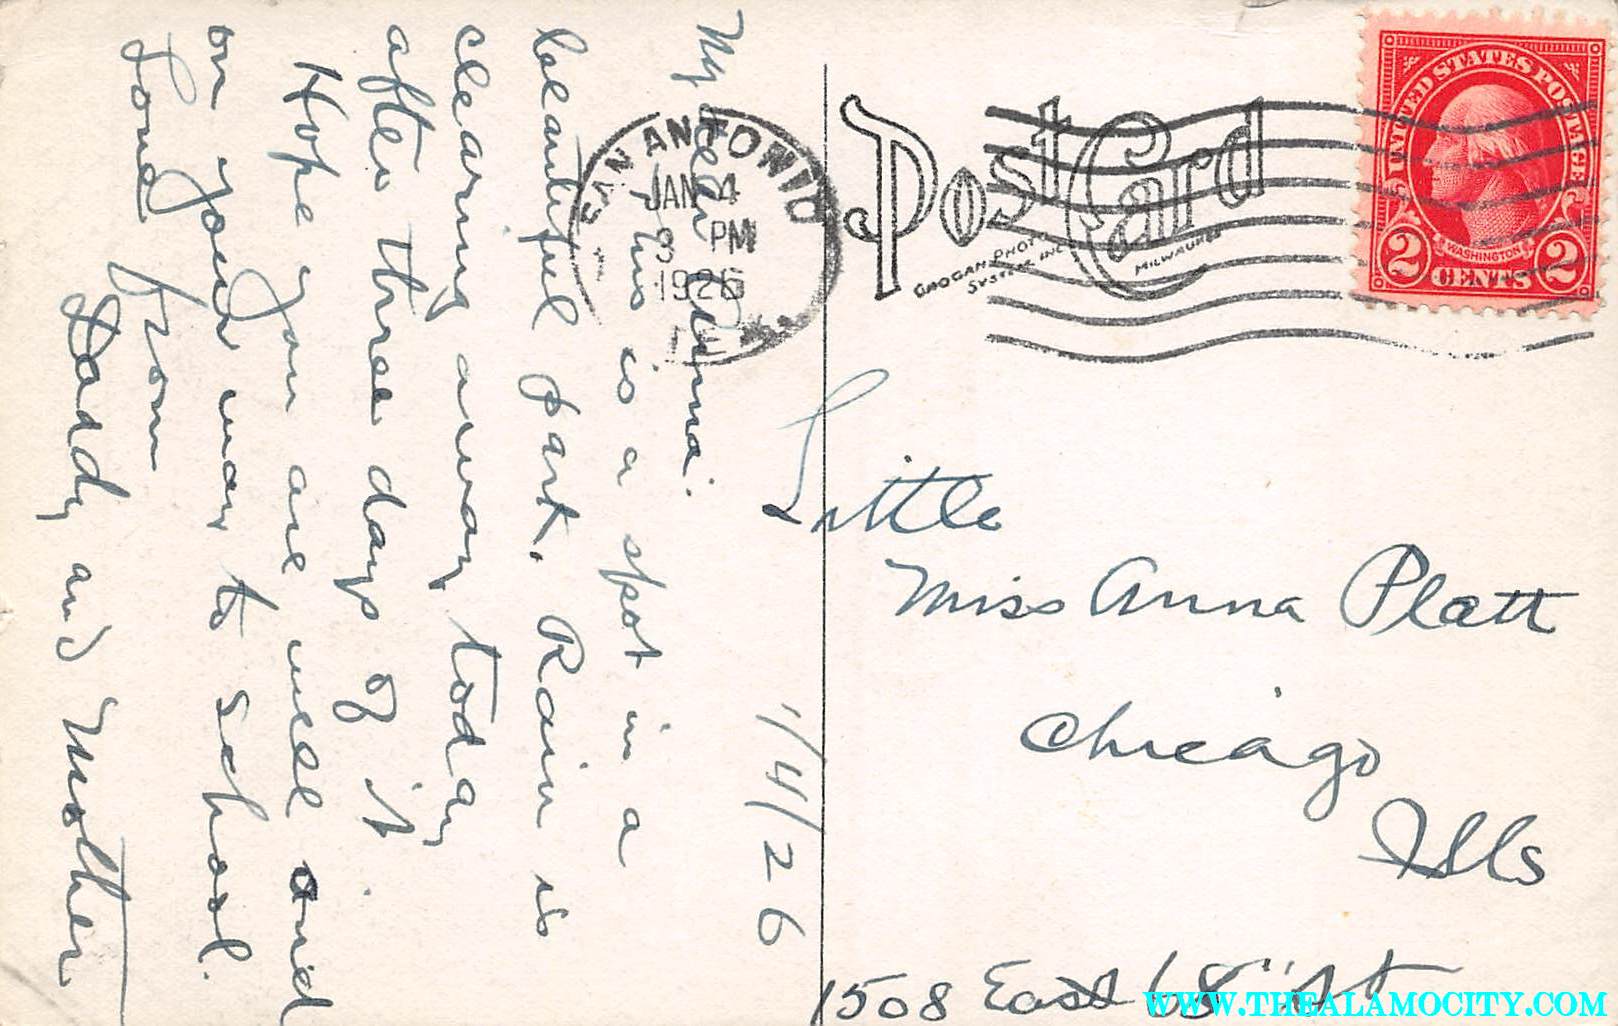 My dear Anna:
This is a spot in a
beautiful part. Rain is
clearing away today
after three days of it
Hope you are well and
on your way to school.
Love from
Daddy and Mother
1/4/26
SAN ANTONIO
JAN 4
PM
1926
Post Card
GROGAN PHOTO
SYSTEM INC.
MILWAUKEE
UNITED STATES POSTAGE
WASHINGTON
2 CENTS 2
Little
Miss Anna Platt
Chicago
Ills
1508 East 68" St
WWW.THEALAMOCITY.COM